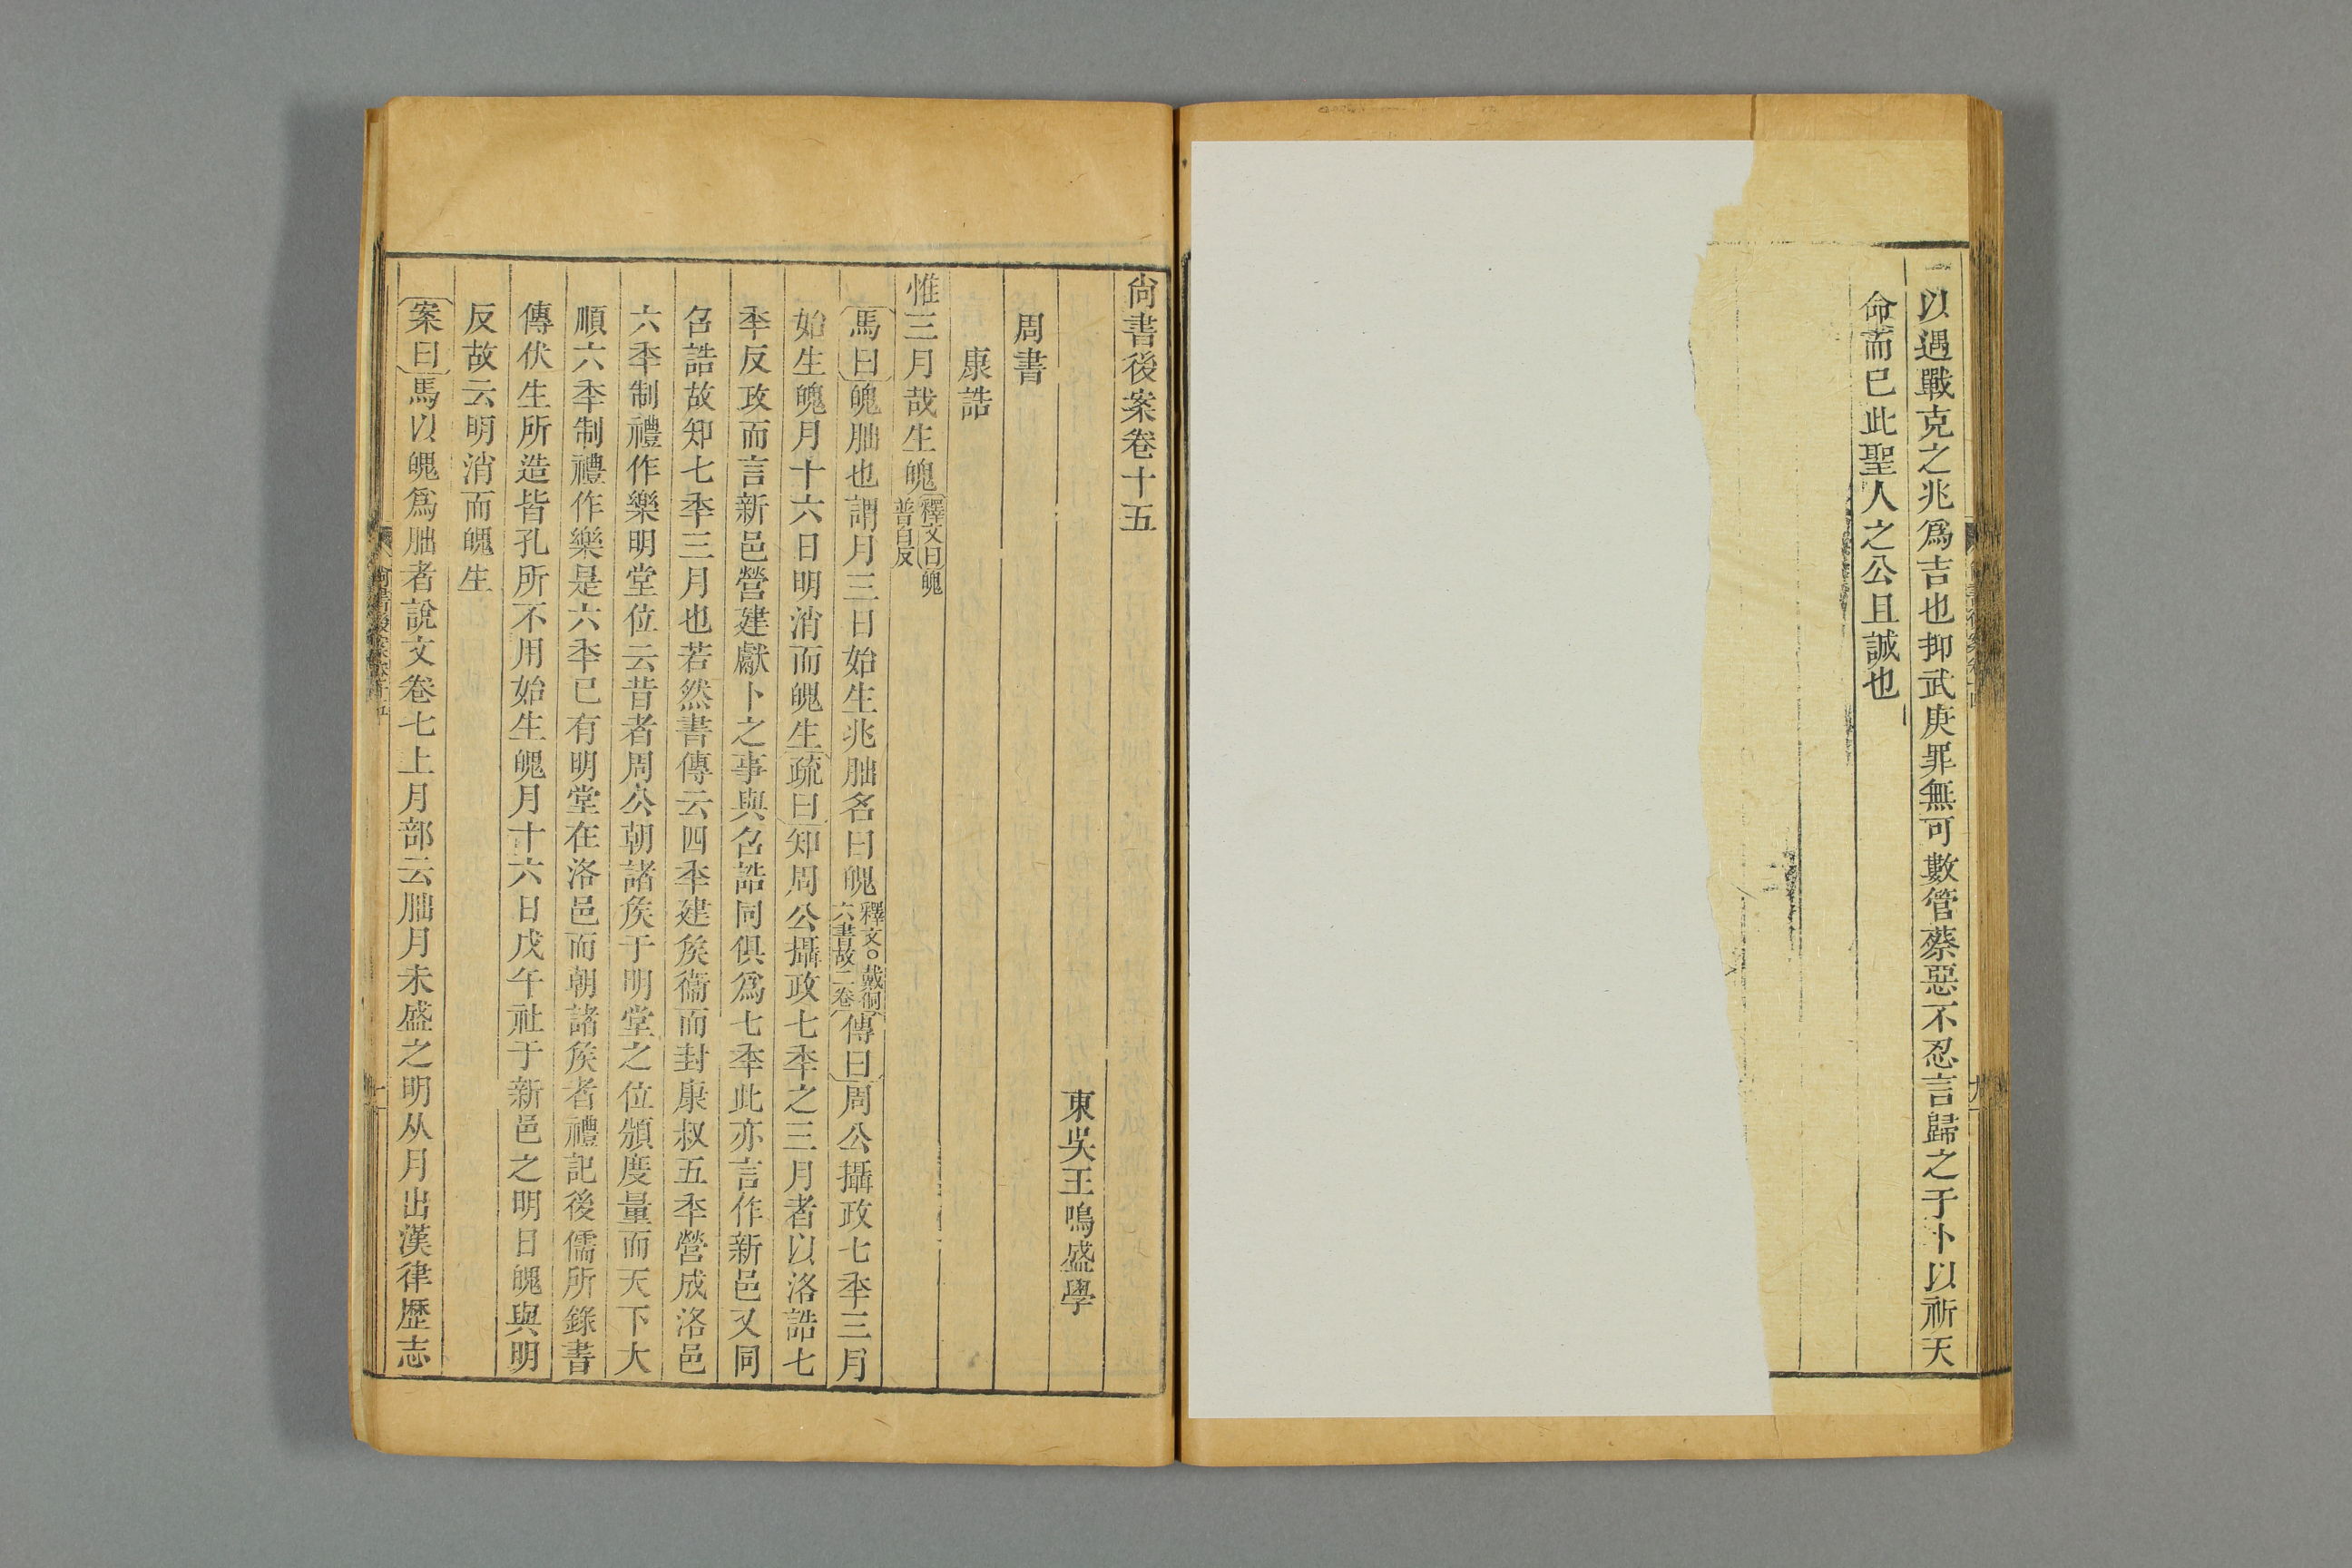 以遇戰克之兆爲吉也抑武庚罪無可數管蔡惡不忍言歸之于卜以祈天
命而已此聖人之公且誠也
尙書後案卷十五
東吳王鳴盛學
周書
康誥
惟三月哉生魄釋文曰魄普白反
馬曰魄朏也謂月三日始生兆朏名曰魄釋文○戴侗六書故二卷傳曰周公攝政七秊三月
始生魄月十六日明消而魄生疏曰知周公攝政七秊之三月者以洛誥七
秊反政而言新邑營建獻卜之事與召誥同俱爲七秊此亦言作新邑又同
召誥故知七秊三月也若然書傳云四秊建矦衞而封康叔五秊營成洛邑
六秊制禮作樂明堂位云昔者周公朝諸矦于明堂之位頒度量而天下大
順六秊制禮作樂是六秊已有明堂在洛邑而朝諸矦者禮記後儒所錄書
傳伏生所造皆孔所不用始生魄月十六日戊午社于新邑之明日魄與明
反故云明消而魄生
案曰馬以魄爲朏者說文卷七上月部云朏月未盛之明从月出漢律歷志